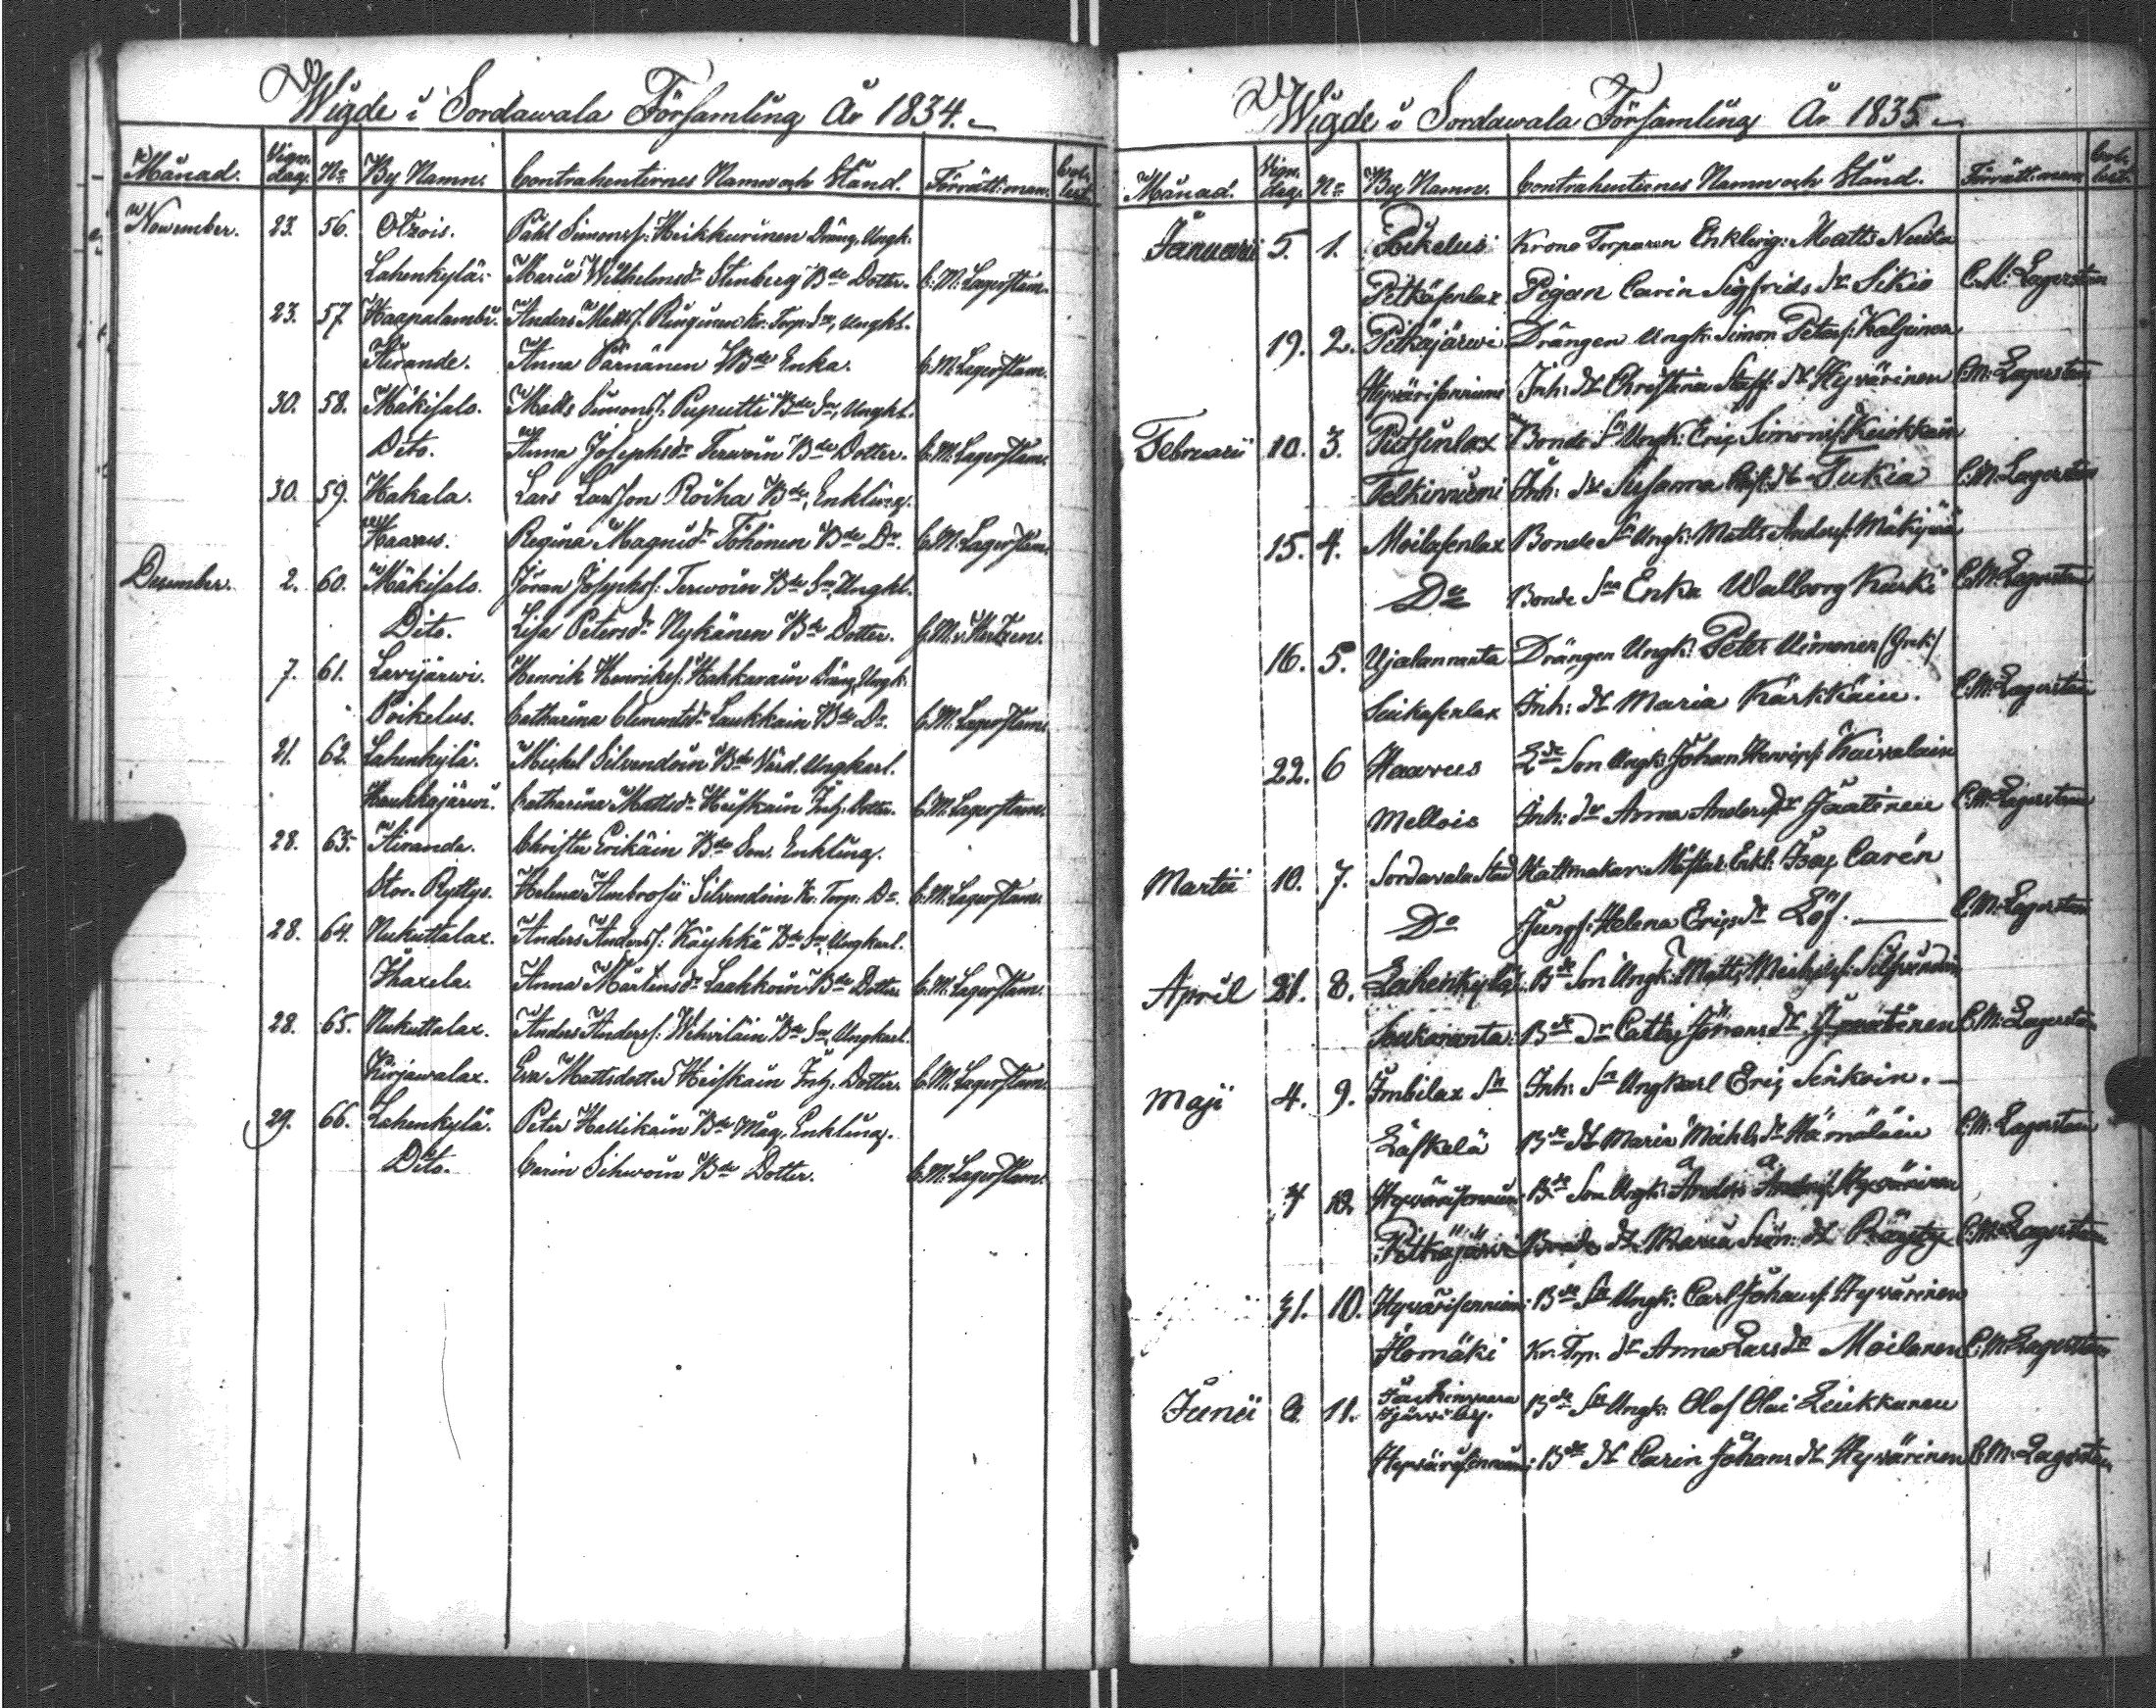 Wigde i Sordawala Församling År 1834.
Månad. Vign. dag. No By Namn. Contrahenternes Namn och Stånd. Förrätt: man. Col. lect.
November. 23. 56. Otsois. Påhl Simonss: Heikkurinen Dräng, Ungk.
Lahenkylä: Maria Wilhelmsdr Stenberg Bde Dotter. C: M: Lagerstam.
23. 57 Haapalambi. Anders Matts: Kr: Torp. Ungkl.
Airande. Anna Pärnänen Bde Enka. C. M. Lagerstam.
30. 58. Mäkisalo. Matts Simonss: Puputti Bde Sn, Ungkl.
Dito. Anna Josephsdr Terwoin Bde Dotter. C: M: Lagerstam.
30. 59. Hakala. Lars Larsson Roiha Bde, Enkling.
Haavus. Regina Magnidr Töhönen Bde Dr. C. M: Lagerstam.
Desember. 2. 60. Mäkisalo. Jöran Josephss: Terwoin Bde Sn Ungkl.
Dito. Lisa Petersdr Nykänen Bde Dotter. C. M. v: Hertzen.
7. 61. Lavijärwi. Henrik Henrikss: Hakkarain Dräng Ungk.
Poikelus. Catharina Clementsdr Laukkain Bde Dr. C. M. Lagerstam.
21. 62. Lahenkylä. Michel Silvendoin Bde Värd. Ungkarl.
Haukkajärwi. Catharina Mattsdr Heiskain Inh. Dotter. C. M. Lagerstam.
28. 63. Airanda. Christer Erikäin Bde Son. Enkling.
Stor. Ryttys. Helena Ambrosii Silvendoin Kr. Torp: Dr. C: M. Lagerstam.
28. 64. Nukuttalax. Anders Anderss: Käyhkä Bde Sn Ungkarl.
Ihaxela. Anna Mårtensdr Laakkoin Bde Dotter C. M. Lagerstam.
28. 65. Nukuttalax. Anders Anderss: Wihviläin Bde Sn, Ungkarl.
Kirjawalax. Eva Mattsdotter Heiskain Inh. Dotter. C. M. Lagerstam.
29. 66. Lahenkylä. Peter Hallikain Bde Måg, Enkling.
Dito. Carin Sihwoin Bde Dotter. C. M. Lagerstam.
Wigde i Sordawala Församling År 1835.
Månad. Vign. dag. No By Namn. Contrahenternes Namn och Stånd. Förrätt: man Col: lect.
Januarii 5. 1. Poikelus Krono Torparen Enkling: Matts
Pitkäsenlax Pigan Carin Sigfrids dr Sikio C. M: Lagerstam
19. 2. Pitkäjärwi Drängen Ungk: Simon Peterss: Kaljunen
Hyvärisenniemi Inh: dr Christina Staff: dr Hyvärinen C. M: Lagerstam
Februarii 10. 3. Bonde Sn Ungk: Eriq Simoniss
Telkinniemi Inh: dr Susanna dr Tukia C. M. Lagerstam
15. 4. Moilasenlax Bonde Sn Ungk: Matts Anderss: Mäkipää
Do Bonde Sns Enka Walborg Karki C. M: Lagerstam
16. 5. Ujalanranta Drängen Ungk: Peter Uimonen (Grek)
Inh: dr Maria Kärkkäin. C. M: Lagerstam
22. 6 Haavus Bde Son Ungk: Johan Kaivalain
Mellois Inh: dr Anna Andersdr Jaatinen C. M: Lagerstam
Martii 10. 7. Sordavala Stad Hattmakare: Mästar: Enkl: Isaq Carén
Do Jungf: Helena Eriqsdr Löf. C. M: Lagerstam
April 21. 8. Lahenkylä: Bde Son Ungk: Matts Michelss:
Bde Dr Cath: Jöransdr Jaatinen C. M: Lagerstam
Maji 4. 9. Imbilax Sn Inh: Sn Ungkarl Eriq Senkoin.
Läskelä Bde dr Maria Michlsdr Hämäläin C. M: Lagerstam
7 10. Hyvärisenniemi Bde Son Ungk: Anders Anderss: Hyvärinen
Pitkäjärwi Bonde dr Maria Sim: dr Räysty C. M: Lagerstam
31. 10. Hyvärisenniemi Bde Sn Ungk: Carl Johanss: Hyvärinen
Ilomäki Kr. Torp. dr Anna Larsdr Moilanen C. M: Lagerstam
Junii 11. by. Bde Sn Ungk: Olof Olai Leikkanen
Hyvärisenniemi Bde dr Carin Johans dr Hyvärinen C. M. Lagerstam